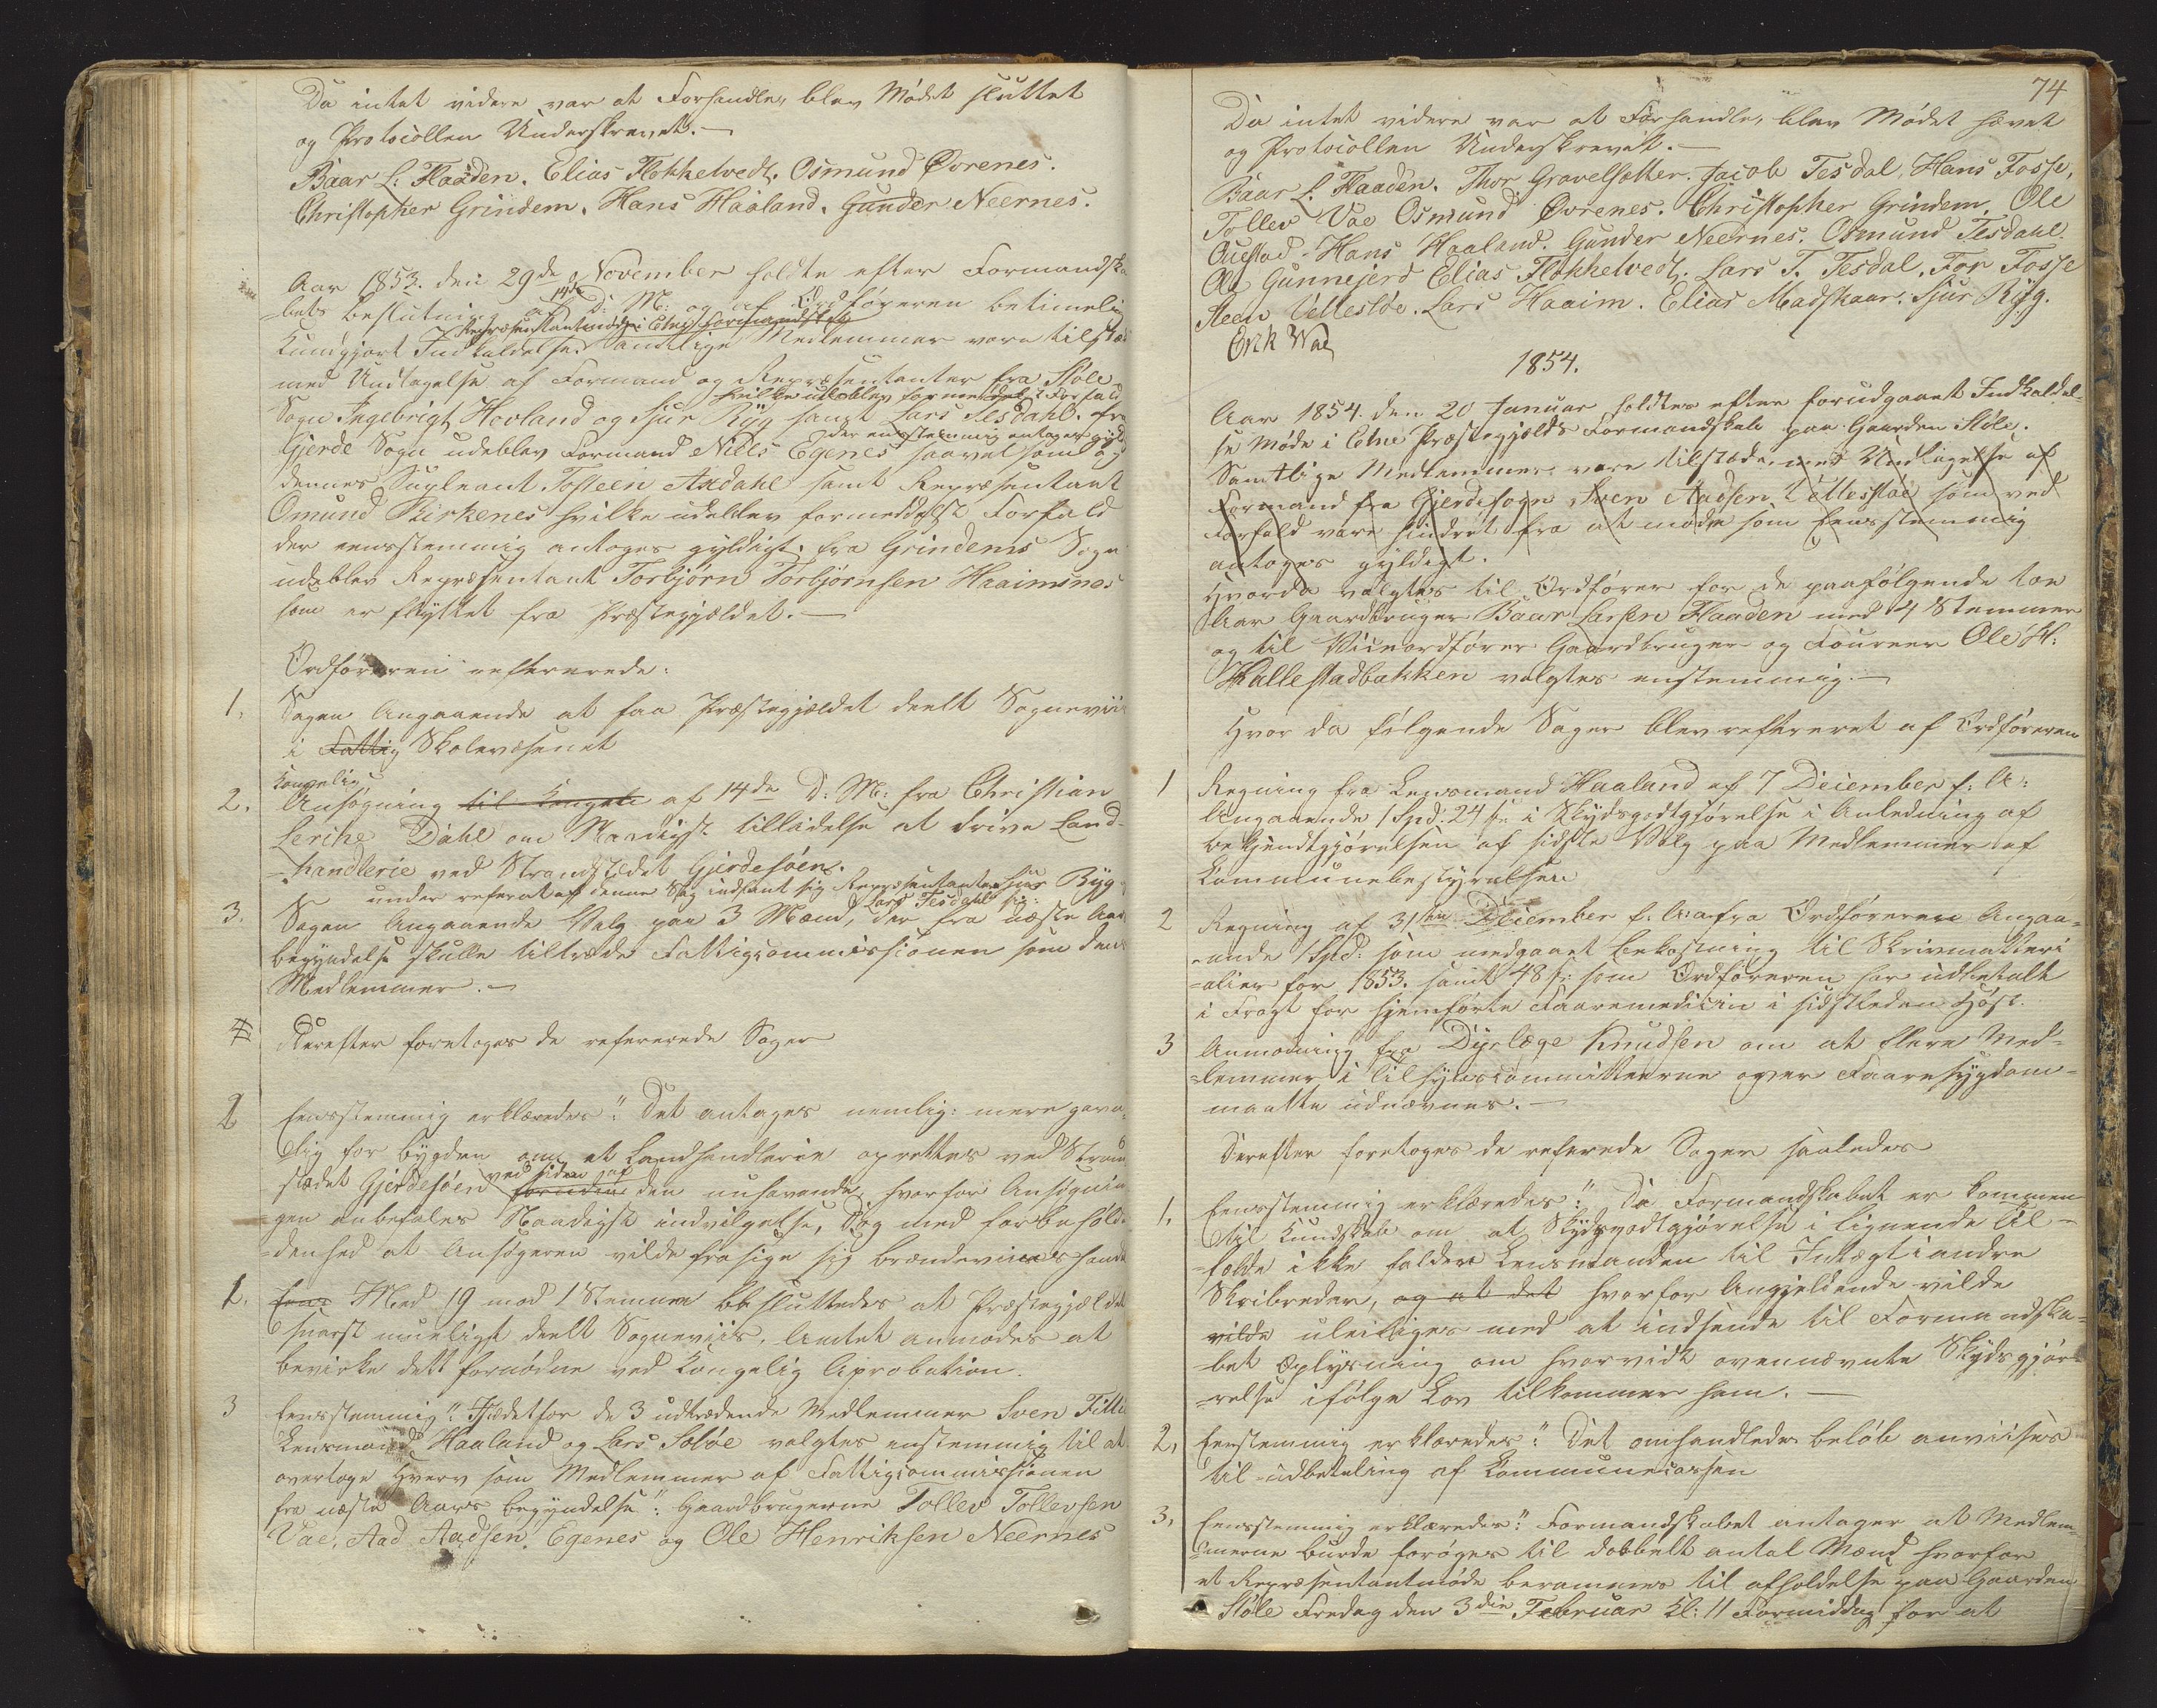 Da intet videre var at Forhandle, blev Mødet sluttet
og Protocollen Underskrevet.—
Baar L: Flaaden. Elias Flokketvedt. Osmund Øvrenes.
Christopher Grindem. Hans Haaland. Gunder Neernes.
Aar 1853. den 29de November holdte efter Formandska-
-bets beslutning af 14de D: M: og af Ordføreren betimelig
Repræsentantmøde i Etne Formandskab
Kundgjort Indkaldelse. Samtlige Medlemmer vare tilstæde
med Undtagelse af Formand og Repræsentanter fra Støle
hvilke udeblev formedelst Forfald
Sogn Ingebrigt Hovland og Sjur Ryg samt Lars Tesdahl. fra
der eensstemmig antoges gyldigt
Gjerde Sogn udeblev Formand Niels Egenes saavelsom og
dennes Supleant Tosteen Axdahl samt Repræsentant
Omund Birkenes hvilke udeblev formedelst Forfald
der eensstemmig antoges gyldigt. fra Grindems Sogn
udeblev Repræsentant Torbjørn Torbjørnsen Haaimsnes
som er flyttet fra Præstegjældet.—
Ordføreren refererede:
1, Sagen Angaaende at faa Præstegjældet deelt Sogneviis
i Fattig Skolevæsenet
kongelig
2. Ansøgning til kongele af 14de D: M: fra Christian
Lerche Dahl om Naadigst tilladelse at drive Land-
-handlerie ved Strandstedet Gjerdesøen.
under referat af denne Sag indfant sig Repræsentanten Sjur Ryg
Lars Tesdahl
3. Sagen Angaaende Valg paa 3 Mænd, der fra næste Aars
begyndelse skulle tiltræde Fattigcommissionen som dens
Medlemmer.—
Derefter foretoges de refererede Sager
2 Eensstemmig erklæredes": Det antages nemlig: mere gavn-
-lig for bygden om et Landhandlerie oprettes ved Strand-
ved siden af
stædet Gjerdesøen foruden den nuhavende, hvorfor Ansøgnin-
-gen anbefales Naadigst indvilgelse, Dog med forbehol-
-denhed at Ansøgeren vilde frasige sig brændeviinshandel
1. Eens Med 19 mod 1 Stemme besluttedes at Præstegjældet
snarest mueligt deelt Sogneviis, Amtet anmodes at
bevirke dett fornødne ved Kongelig Aprobation.
3 Eensstemmig": Istædetfor de 3 udtrædende Medlemmer Sven Fitti
Lensmand Haaland og Lars Sebøe valgtes enstemmig til at
overtage Hverv som Medlemmer af Fattigcommissionen
fra næste Aars begyndelse": Gaardbrugerne Tollev Tollevsen
Vae, Aad Aadsen Egenes og Ole Henriksen Neernes
74
Da intet videre var at Forhandle, blev Mødet hævet
og Protocollen Underskrevet.—
Baar L. Flaaden. Thor Gravelsætter. Jacob Tesdal, Hans Fosse,
Tollev Vae Osmund Øvrenes. Christopher Grindem, Ole
Questad. Hans Haaland. Gunder Neernes. Osmund Tesdahl.
Ole Gunnejerd Elias Flokketvedt. Lars T. Tesdal. For Fosse
Steen Vettestøe. Lars Haaim. Elias Madskaar. Sjur Ryg.
Erik Wae
1854.
Aar 1854. den 20 Januar holdtes efter forudgaaet Indkaldel-
se Møde i Etne Præstegjælds Formandskab paa Gaarden Støle.
Samtlige Medlemmer vare tilstæde, med Undtagelse af
Formand fra Gjerdesogn Sven Aadsen Vettestøe som ved
Forfald vare hindret fra at møde som Eensstemmig
antoges gyldigt.
Hvorda valgtes til Ordfører for de paafølgende toe
Aar Gaardbruger Baar Larsen Flaaden med 4 Stemmer
og til Viceordfører Gaardbruger og Fourer Ole H:
Hallestadbakken valgtes enstemmig.—
Hvor da følgende Sager blev refereret af Ordføreren
1 Regning fra Lensmand Haaland af 7 December f: A:
Angaaende 1 Spd: 24 s. i Skydsgodtgjørelse i Anledning af
bekjendtgjørelsen af sidste Valg paa Medlemmer af
Kommunebestyrelsen
2 Regning af 31te December f: A: fra Ordføreren Angaa-
-ende 1 Spd: som medgaaet bekostning til Skrivmatteri-
-alier for 1853. samt 48 s: som Ordføreren har udbetalt
i Fragt for hjemførte Faaremedicin i sidstleden Høst.
3 Anmodning fra Dyrlæge Knudsen om at flere Med-
-lemmer i Tilsynscommitteerne over Faaresygdom-
maatte udnævnes.—
Derefter foretoges de referede Sager saaledes
1, Eensstemmig erklæredes": Da Formandskabet er kommen
til Kundskab om at Skydsgodtgjørelse i lignende til-
-fælde ikke falder Lensmanden til Indtægt i andre
Skibreder, og at det hvorfor Angjeldende vilde
vilde uleiliges med at indsende til Formandska-
-bet Oplysning om hvorvidt ovennævnte Skydsgjør-
-relse ifølge Lov tilkommer ham.—
2, Eenstemmig erklæredes": Det omhandlede beløb anviises
til udbetaling af Kommunecassen
3, Eensstemmig erklæredes": Formandskabet antager at Medlem-
-merne burde forøges til dobbelt antal Mænd hvorfor
et Repræsentantmøde berammes til afholdelse paa Gaarden
Støle Fredag den 3die Februar Kl: 11 Formiddag for at